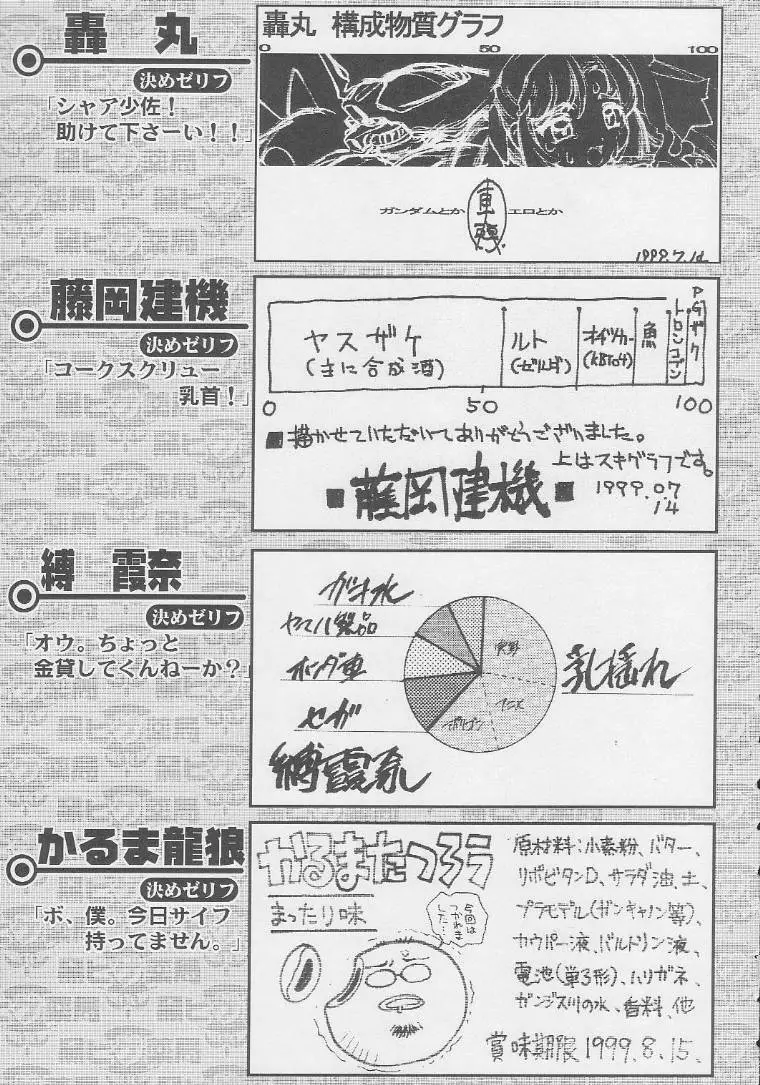 轟 丸
決めゼリフ
「シャア少佐！
助けて下さーい！！」
轟丸 構成物質グラフ
0 50 100
ガンダムとか
エロとか
1999.7.14
藤岡建機
決めゼリフ
「コークスクリュー
乳首！」
ヤスザケ
(主に合成酒)
ルト
魚
トロンコゲン
PGザク
0 50 100
■描かせていただいてありがとうございました。
上はスキグラフです。
■藤岡建機■
1999.07
14
縛 霞奈
決めゼリフ
「オウ。ちょっと
金貸してくんねーか？」
ガラナ水
ヤマハ製品
ホンダ車
セガ
実野
アニメ
ポリゴン
乳揺れ
縛霞奈
かるま龍狼
決めゼリフ
「ボ、僕。今日サイフ
持ってません。」
かるまたつろう
まったり味
今回は
つかれま
した…
原材料:小麦粉、バター、
リポビタンD、サラダ油、土、
プラモデル(ガンキャノン等)、
カウパー液、バルトリン液、
電池(単3形)、ハリガネ、
ガンジス川の水、香料、他
賞味期限1999.8.15.